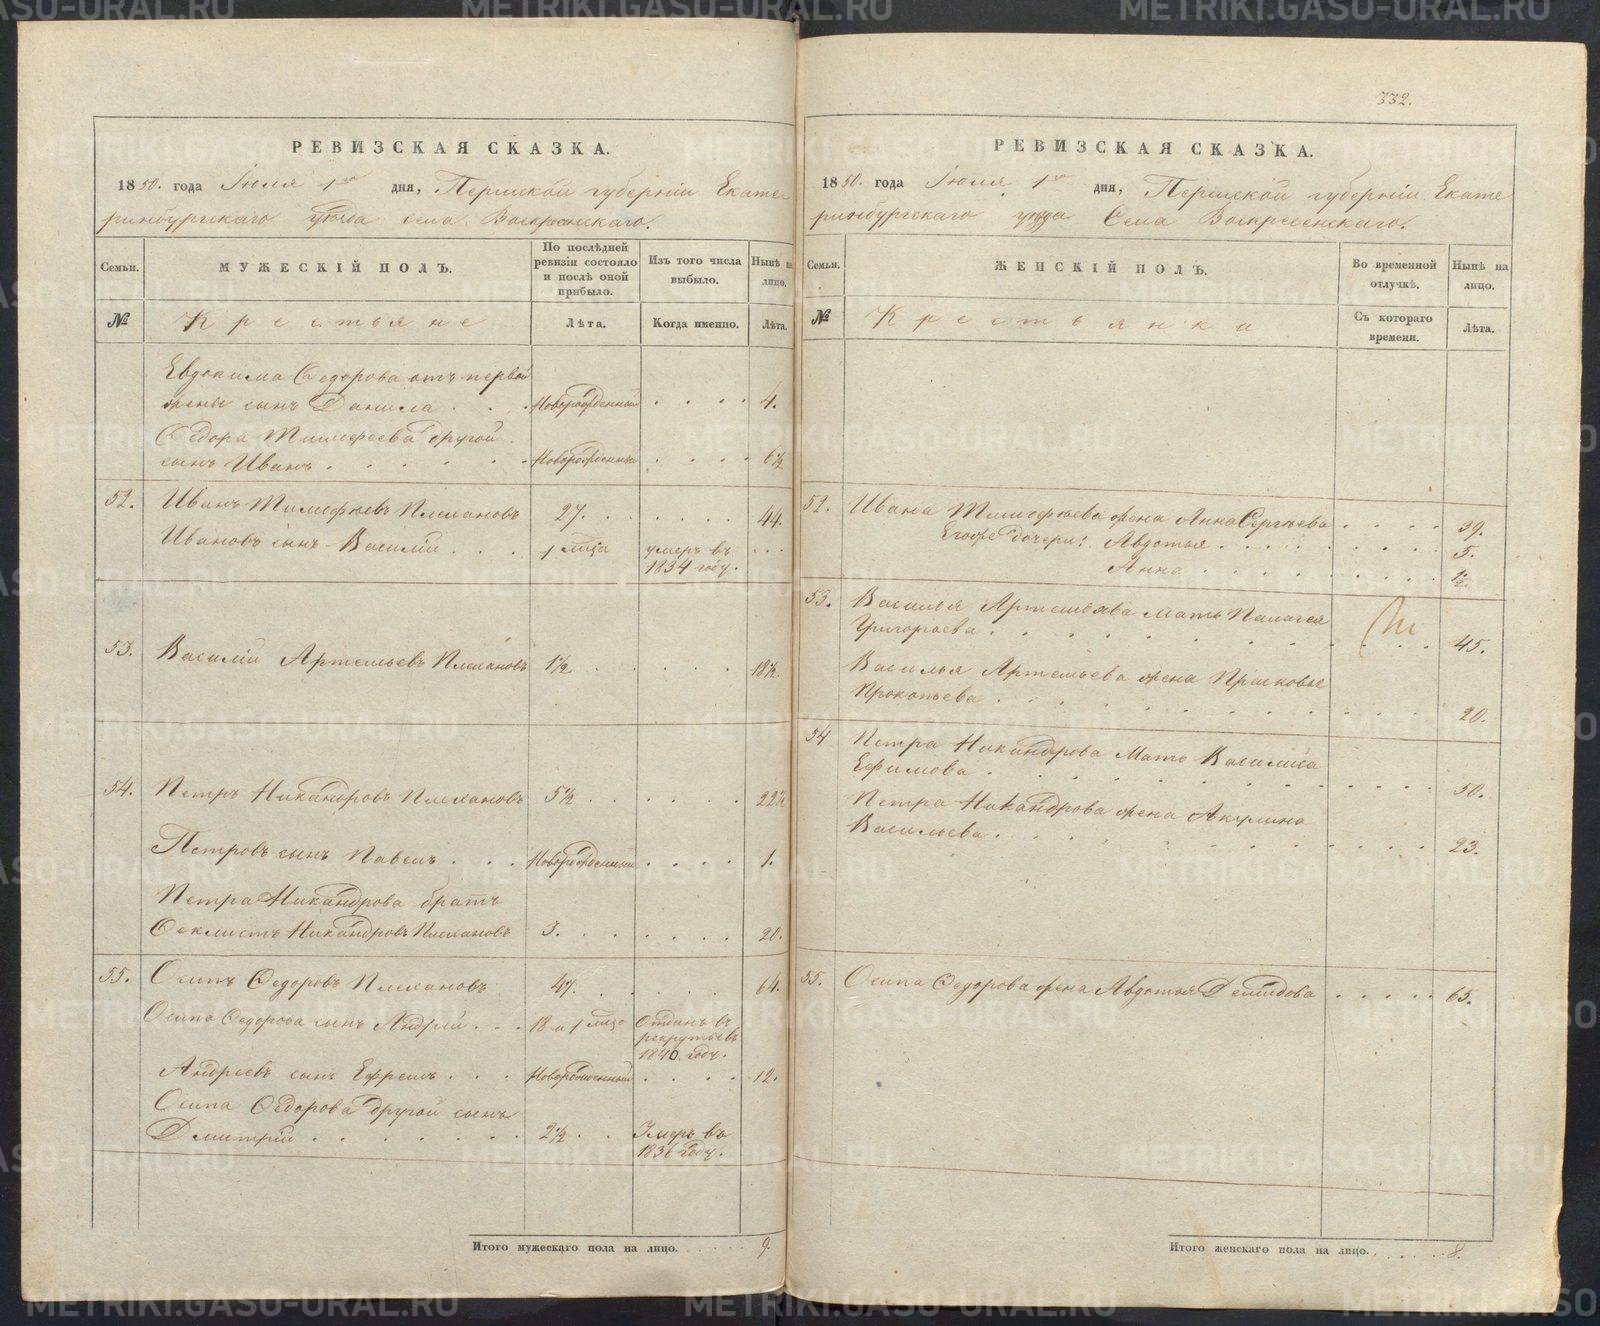 332.
РЕВИЗСКАЯ СКАЗКА.
1850. года Іюля 1го дня, Пермской губерніи Екате
ринбургскаго уѣзда села Воскресенскаго.
Семьи.
МУЖЕСКІЙ ПОЛЪ.
По послѣдней
ревизіи состояло
и послѣ оной
прибыло.
Изъ того числа
выбыло.
Нынѣ на
лицо.
№
Крестьяне
Лѣта.
Когда именно.
Лѣта.
Евдокима Ѳедорова отъ первой
жены сынъ Данила . . . Новорожденный . . . . 4.
Ѳедора Тимофеева другой
сынъ Иванъ . . . . . . Новорожденный . . . . 6½
52. Иванъ Тимофѣевъ Плехановъ 27. . . . . . . 44.
Ивановъ сынъ Василій . . . 1 мѣсца умеръ въ . . .
1834 году.
53. Василій Артемьевъ Плехановъ 1½ . . . . . 18½.
54. Петръ Никандровъ Плехановъ 5½ . . . . . 22½
Петровъ сынъ Павелъ . . . Новорожденный . . . . 1.
Петра Никандрова братъ
Ѳеклистъ Никандровъ Плехановъ 3. . . . . . 20.
55. Осипъ Ѳедоровъ Плехановъ 47. . . . . . 64.
Осипа Ѳедорова сынъ Андрей . . . 18 и 1 мѣсц Отданъ въ
рекруты въ
1840 году.
Андреевъ сынъ Ефремъ . . . Новорожденный . . . . 12.
Осипа Ѳедорова другой сынъ
Дмитрій . . . . . . . 2½ . . Умеръ въ
1836 году.
Итого мужескаго пола на лицо. . . . . . . 9.
РЕВИЗСКАЯ СКАЗКА.
1850. года Іюля 1го дня, Пермской губерніи Екате
ринбургскаго уѣзда Села Воскресенскаго.
Семьи.
ЖЕНСКІЙ ПОЛЪ.
Во временной
отлучкѣ.
Нынѣ на
лицо.
№
Крестьянки
Съ котораго
времени.
Лѣта.
52. Ивана Тимофѣева жена Анна Сергѣева . . . . 39.
Егоже дочери: Авдотья . . . . . . . . . 5.
Анна . . . . . . . . . ½.
53. Василья Артемьева мать Палагея
Григорьева . . . . . . . . . . 45.
Василья Артемьева жена Прасковья
Прокопьева . . . . . . . . . . 20.
54 Петра Никандрова Мать Василиса
Ефимова . . . . . . . . . . 50.
Петра Никандрова жена Акулина
Васильева . . . . . . . . . . 23.
55. Осипа Ѳедорова жена Авдотья Демидова . . . . . 65.
Итого женскаго пола на лицо. . . . . . 8.
METRIKI.GASO-URAL.RU